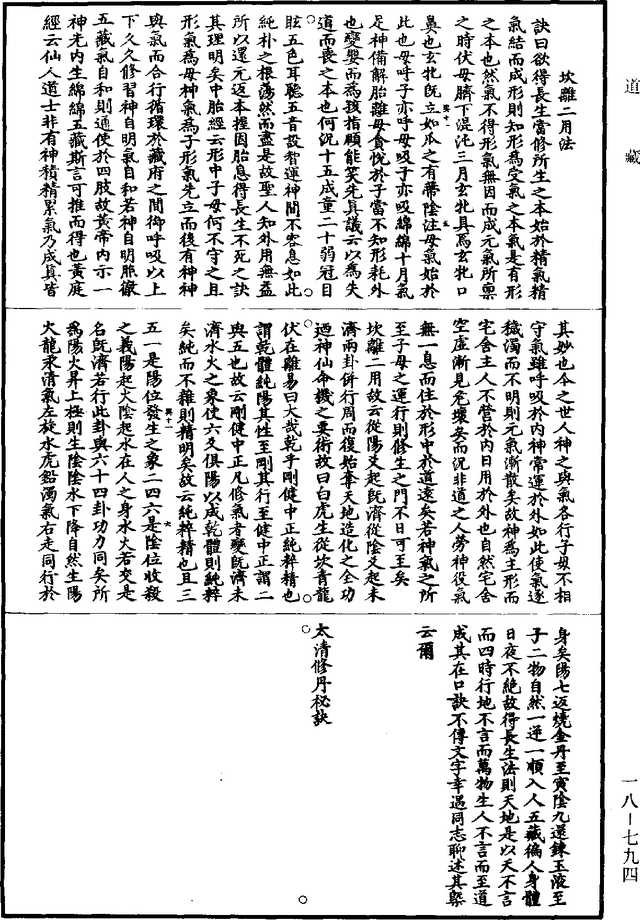 道藏
坎離二用法
訣曰欲得長生當修所生之本始於精氣精
氣結而成形則知形為定氣之本氣是有形
之本也然氣不得形氣無因而成元氣所稟
之時伏母臍下混沌三月玄牝具焉玄牝口
鼻也玄牝既立如瓜之有蒂陰注母氣始於
此也母呼子亦呼母吸子亦吸綿綿十月氣
足神備解胎離母貪悅於子當不知形耗外
也變嬰而為孩指顧能笑先具議云以為失
道而喪之本也何況十五成童二十弱冠目
眩五色耳聽五音設智運神間不容息如此
純朴之根蕩然而盡是故聖人知外用無益
所以還元返本握固胎息得長生不死之訣
其理明矣中胎經云形中子母何不守之且
形氣為母神氣為子形氣先立而後有神神
與氣而合行循環於藏府之間御呼吸以上
下久久修習神自明氣自和若神自明照徹
五藏氣自和則通使於四肢故黃帝內示一
神光內生綿綿五藏斯言可推而得也黃庭
經云仙人道士非有神積精累氣乃成真皆
其妙也今之世人神之與氣各行子母不相
守氣雖呼吸於內神常運於外如此使氣逐
穢濁而不明則元氣漸散矣故神為主形而
宅舍主人不營於內日用於外也自然宅舍
空虛漸見危壞矣而況非道之人勞神役氣
無一息而住於形中於道遠矣若神氣之所
至子母之運行則修生之門不日可至矣
坎離二用故云從陽爻起既濟從陰爻起未
濟兩卦併行周而復始奪天地造化之全功
迺神仙命機之要術故曰白虎生從坎青龍
伏在離易曰大哉乾乎剛健中正純粹精也
謂乾體純陽其性至剛其行至健中正謂二
與五也故云剛健中正凡修氣者變既濟未
濟水火之象使六爻俱陽以成乾體則純粹
矣純而不雜則精明矣故云純粹精也且三
五一是陽位發生之象二四六是陰位收殺
之義陽起火陰起水在人之身水火若交是
名既濟若行此卦與六十四卦功力同矣所
為陽火昇上極則生陰陰水下降自然生陽
火龍汞清氣左旋水虎鉛濁氣右走同行於
身矣陽七返燒金丹至寅陰九還鍊玉液至
子二物自然一逆一順入人五藏徧人身體
日夜不絕故得長生法則天地是以天不言
而四時行地不言而萬物生人不言而至道
成其在口訣不傳文字幸遇同志聊述其槩
云爾
太清修丹秘訣
一八－七九四